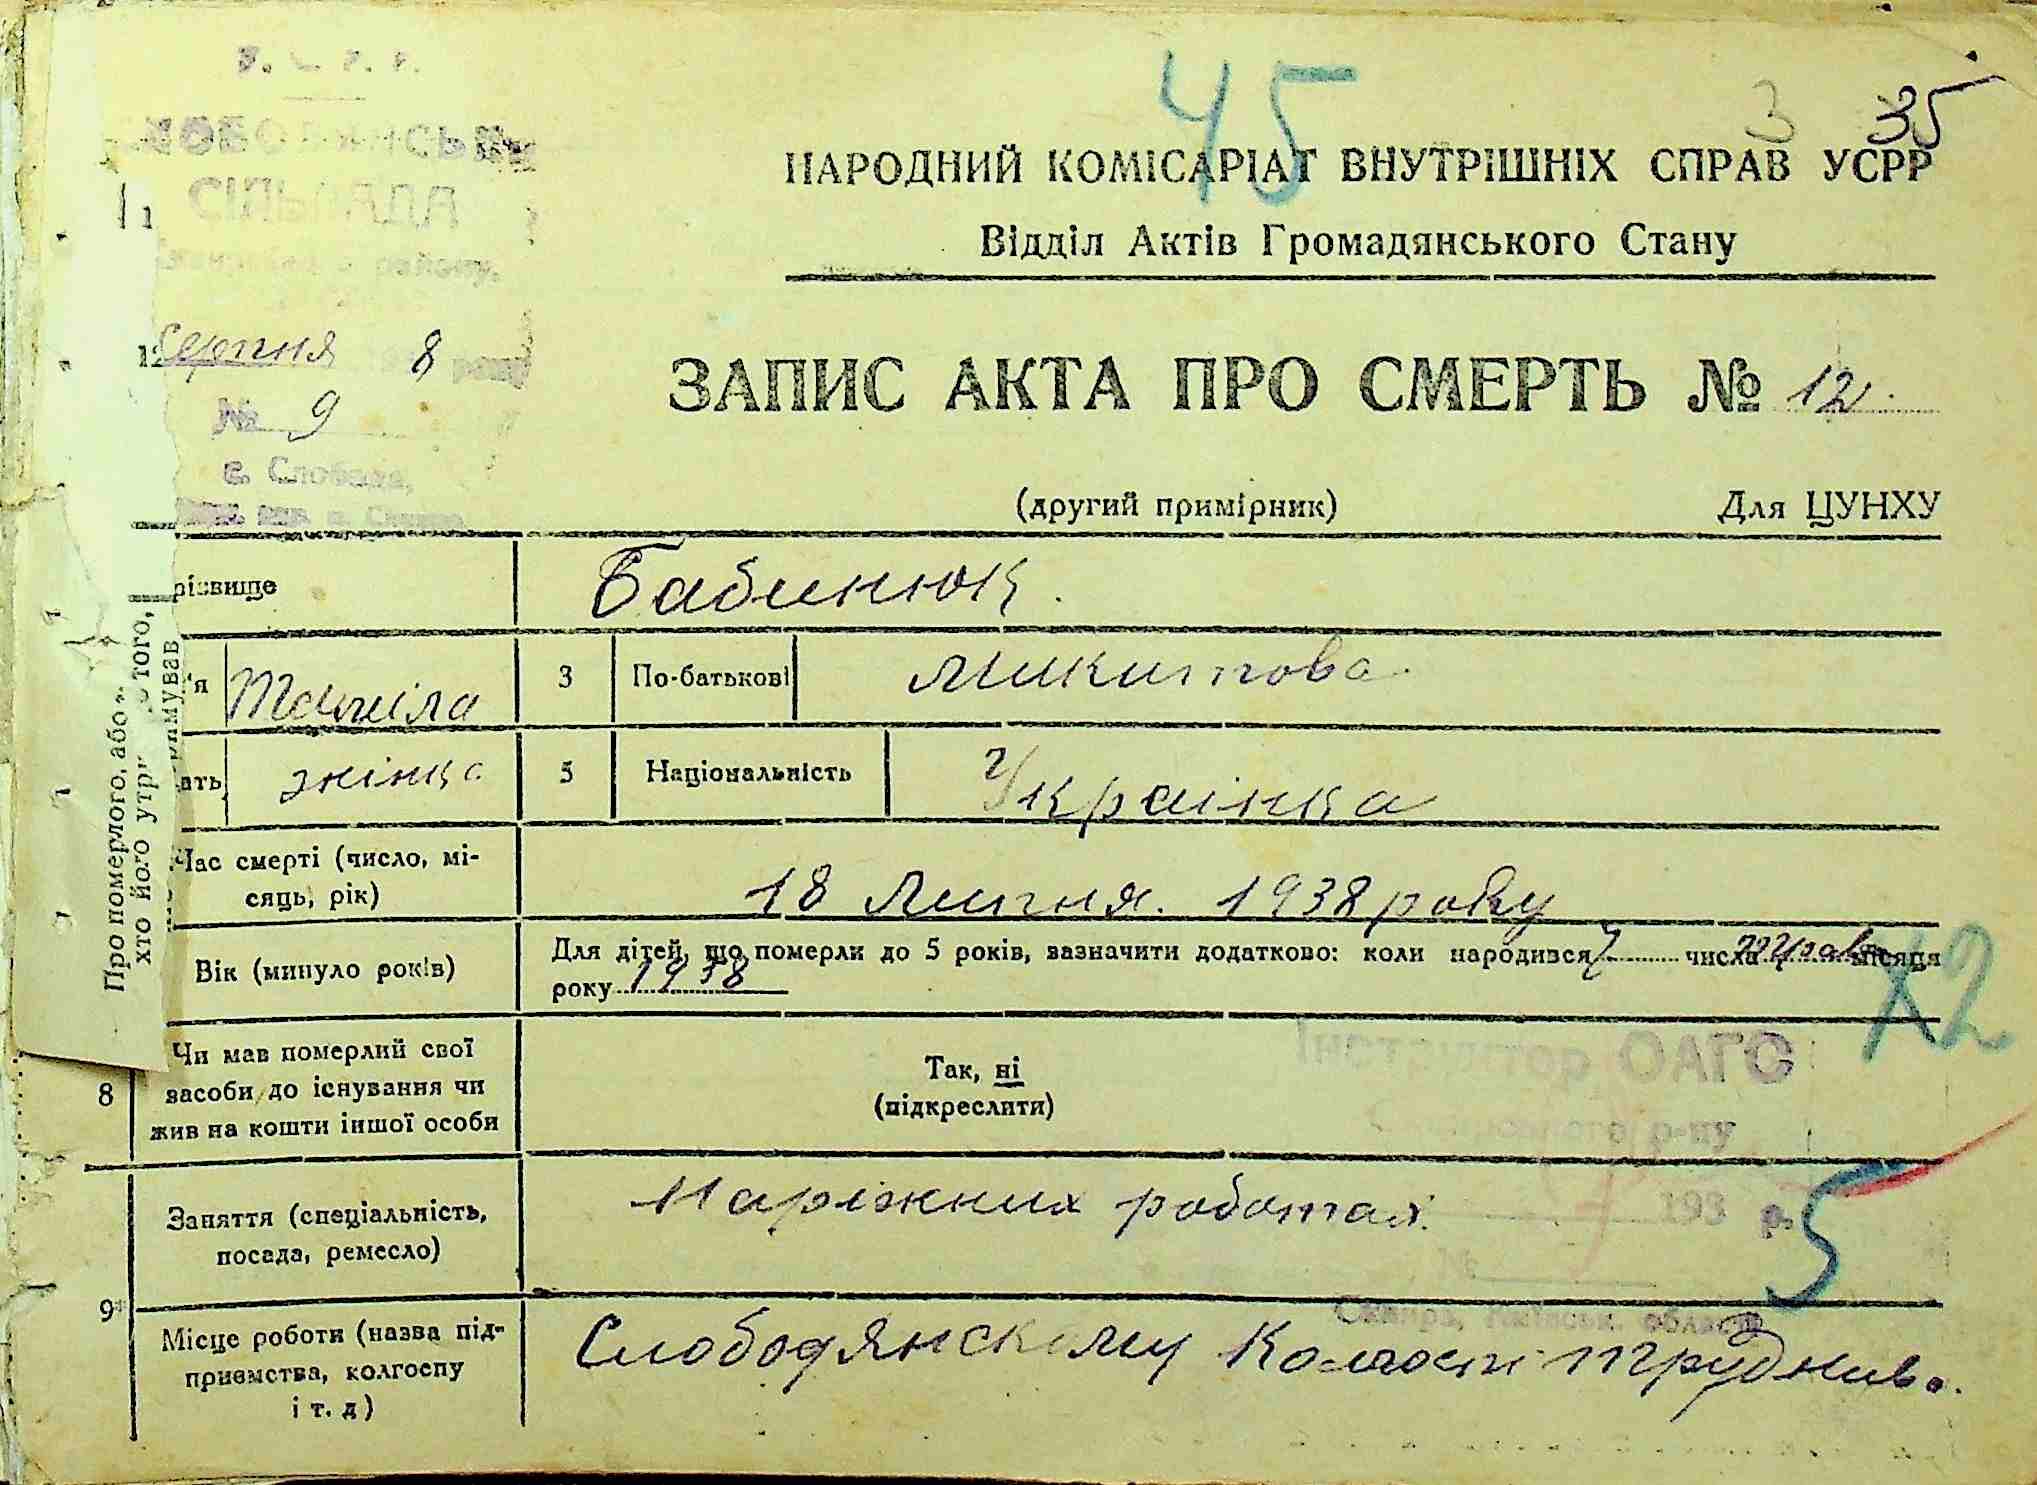 45
3 35
СІЛЬРАДА
району.
Серпня 8 року
№ 9
с. Слобода,
НАРОДНИЙ КОМІСАРІАТ ВНУТРІШНІХ СПРАВ УСРР
Відділ Актів Громадянського Стану
ЗАПИС АКТА ПРО СМЕРТЬ № 12.
(другий примірник) Для ЦУНХУ
різвище Бабинюк.
'я 3 По-батькові Микитова
ать жінка 5 Національність Українка
Час смерті (число, мі-
сяць, рік) 18 Липня. 1938 року
Вік (минуло років) Для дітей, що померли до 5 років, зазначити додатково: коли народився 7 числа Трав місяця
року 1938
12
8 Чи мав померлий свої
засоби до існування чи
жив на кошти іншої особи
Так, ні
(підкреслити)
Інструктор ОАГС
р-ну
193 р.
№
Сквира, Київськ. області
5
9 Заняття (спеціальність,
посада, ремесло) Наріжних роботах.
Місце роботи (назва під-
приємства, колгоспу
і т. д) Слободянскому Колгоспі трудднів.
Про померлого, або
хто його утр того,
римував